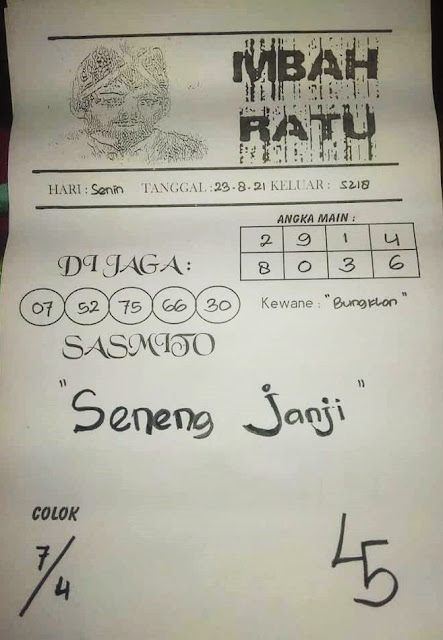 MBAH
RATU
HARI : Senin TANGGAL : 23-8-21 KELUAR : 5218
ANGKA MAIN :
2 9 1 4
8 0 3 6
DI JAGA :
07 52 75 66 30
Kewane : "Bunglon"
SASMITO
"Seneng Janji"
COLOK
7/4
45